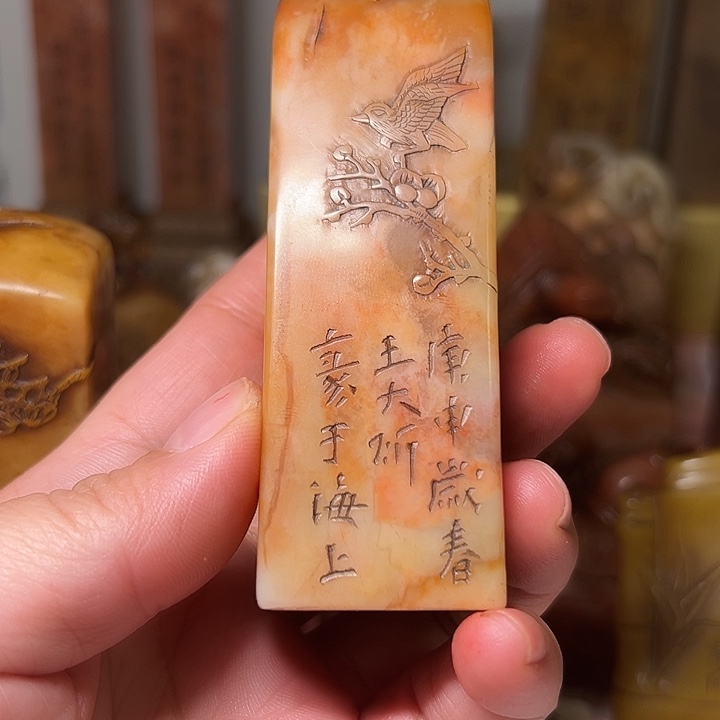 庚申歲春
王大炘
篆于海上